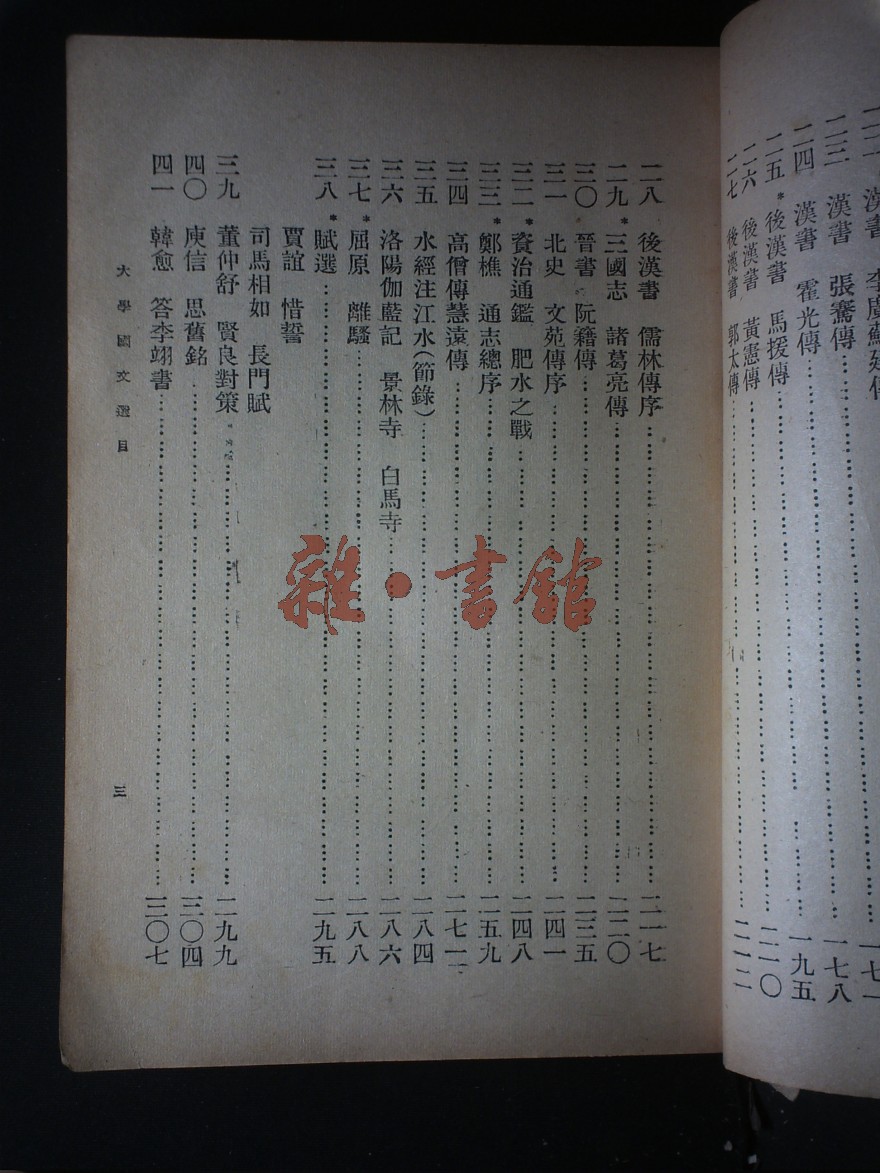 漢書 張騫傳 一七八
二四 漢書 霍光傳 一九五
二五 *後漢書 馬援傳 二一〇
二六 後漢書 黃憲傳
二七 後漢書 郭太傳 二一二
二八 後漢書 儒林傳序 二一七
二九 *三國志 諸葛亮傳 二二〇
三〇 晉書 阮籍傳 二三五
三一 北史 文苑傳序 二四一
三二 *資治通鑑 肥水之戰 二四八
三三 *鄭樵 通志總序 二五九
三四 高僧傳慧遠傳 二七一
三五 水經注江水(節錄) 二八四
三六 洛陽伽藍記 景林寺 白馬寺 二八六
三七 *屈原 離騷 二八八
三八 *賦選 二九五
賈誼 惜誓
司馬相如 長門賦
三九 董仲舒 賢良對策 二九九
四〇 庾信 思舊銘 三〇四
四一 韓愈 答李翊書 三〇七
大學國文選目 三
雜·書館